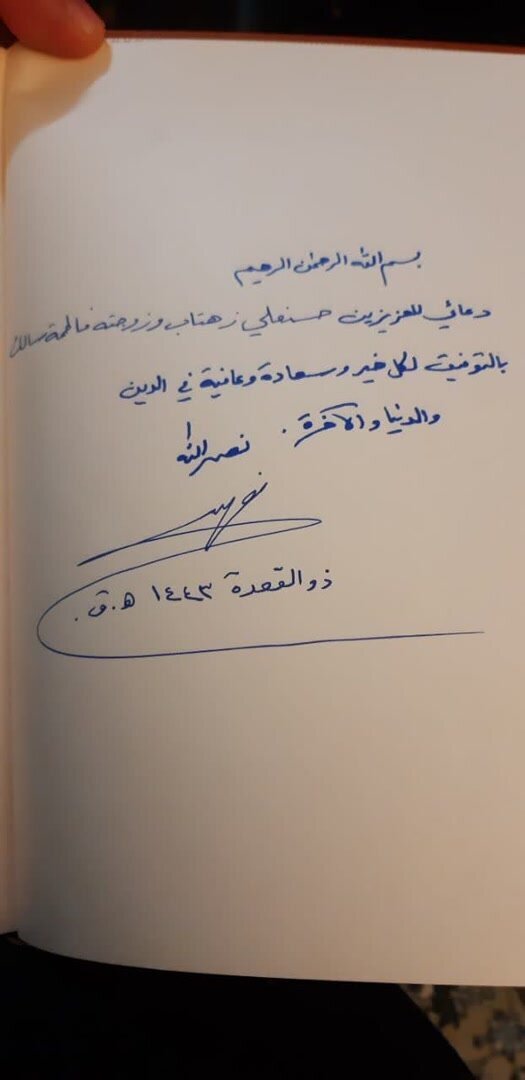 بسم الله الرحمن الرحيم
دعائي للعزيزين حسنعلي زهتاب وزوجته فاطمة سالك
بالتوفيق لكل خير وسعادة وعافية في الدين
والدنيا والآخرة. نصر الله
ذو القعدة ١٤٤٣ هـ.ق.